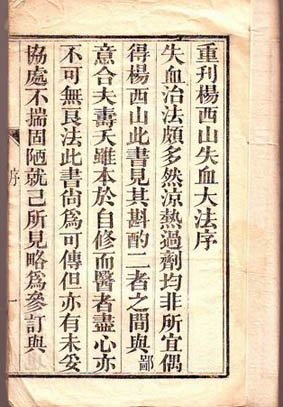 重刊楊西山失血大法序
失血治法頗多然涼熱過劑均非所宜偶
得楊西山此書見其斟酌二者之間與鄙
意合夫壽夭雖本於自修而醫者盡心亦
不可無良法此書尚為可傳但亦有未妥
協處不揣固陋就己所見略為參訂與
序
一